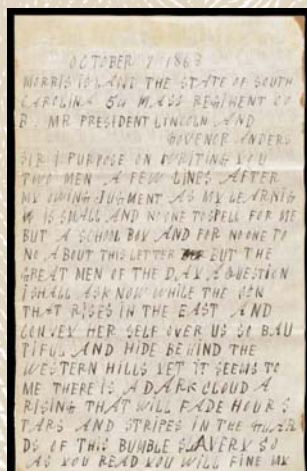 OCTOBER 7 1863
MORRIS ISLAND THE STATE OF SOUTH
CAROLINA 54 MASS REGIMENT CO
B. MR PRESIDENT LINCOLN AND
GOVENOR ANDERS
SIR I PURPOSE ON WRITING YOU
TWO MEN A FEW LINES AFTER
MY OWING JUGMENT AS MY LEARNIG
IS SMALL AND NOONE TO SPELL FOR ME
BUT A SCHOOL BOY AND FOR NOONE TO
NO ABOUT THIS LETTER BUT THE
GREAT MEN OF THE DAY A QUESTION
I SHALL ASK NOW WHILE THE SON
THAT RISES IN THE EAST AND
CONVEX HER SELF OVER US SO BAU
TIFUL AND HIDE BEHIND THE
WESTERN HILLS YET IT SEEMS TO
ME THERE IS A DARK CLOUD A
RISING THAT WILL FADE HOUR S
TARS AND STRIPES IN THE
DS OF THIS BUMBLE SLAVERY SO
AS YOU READ YOU WILL FINE MY